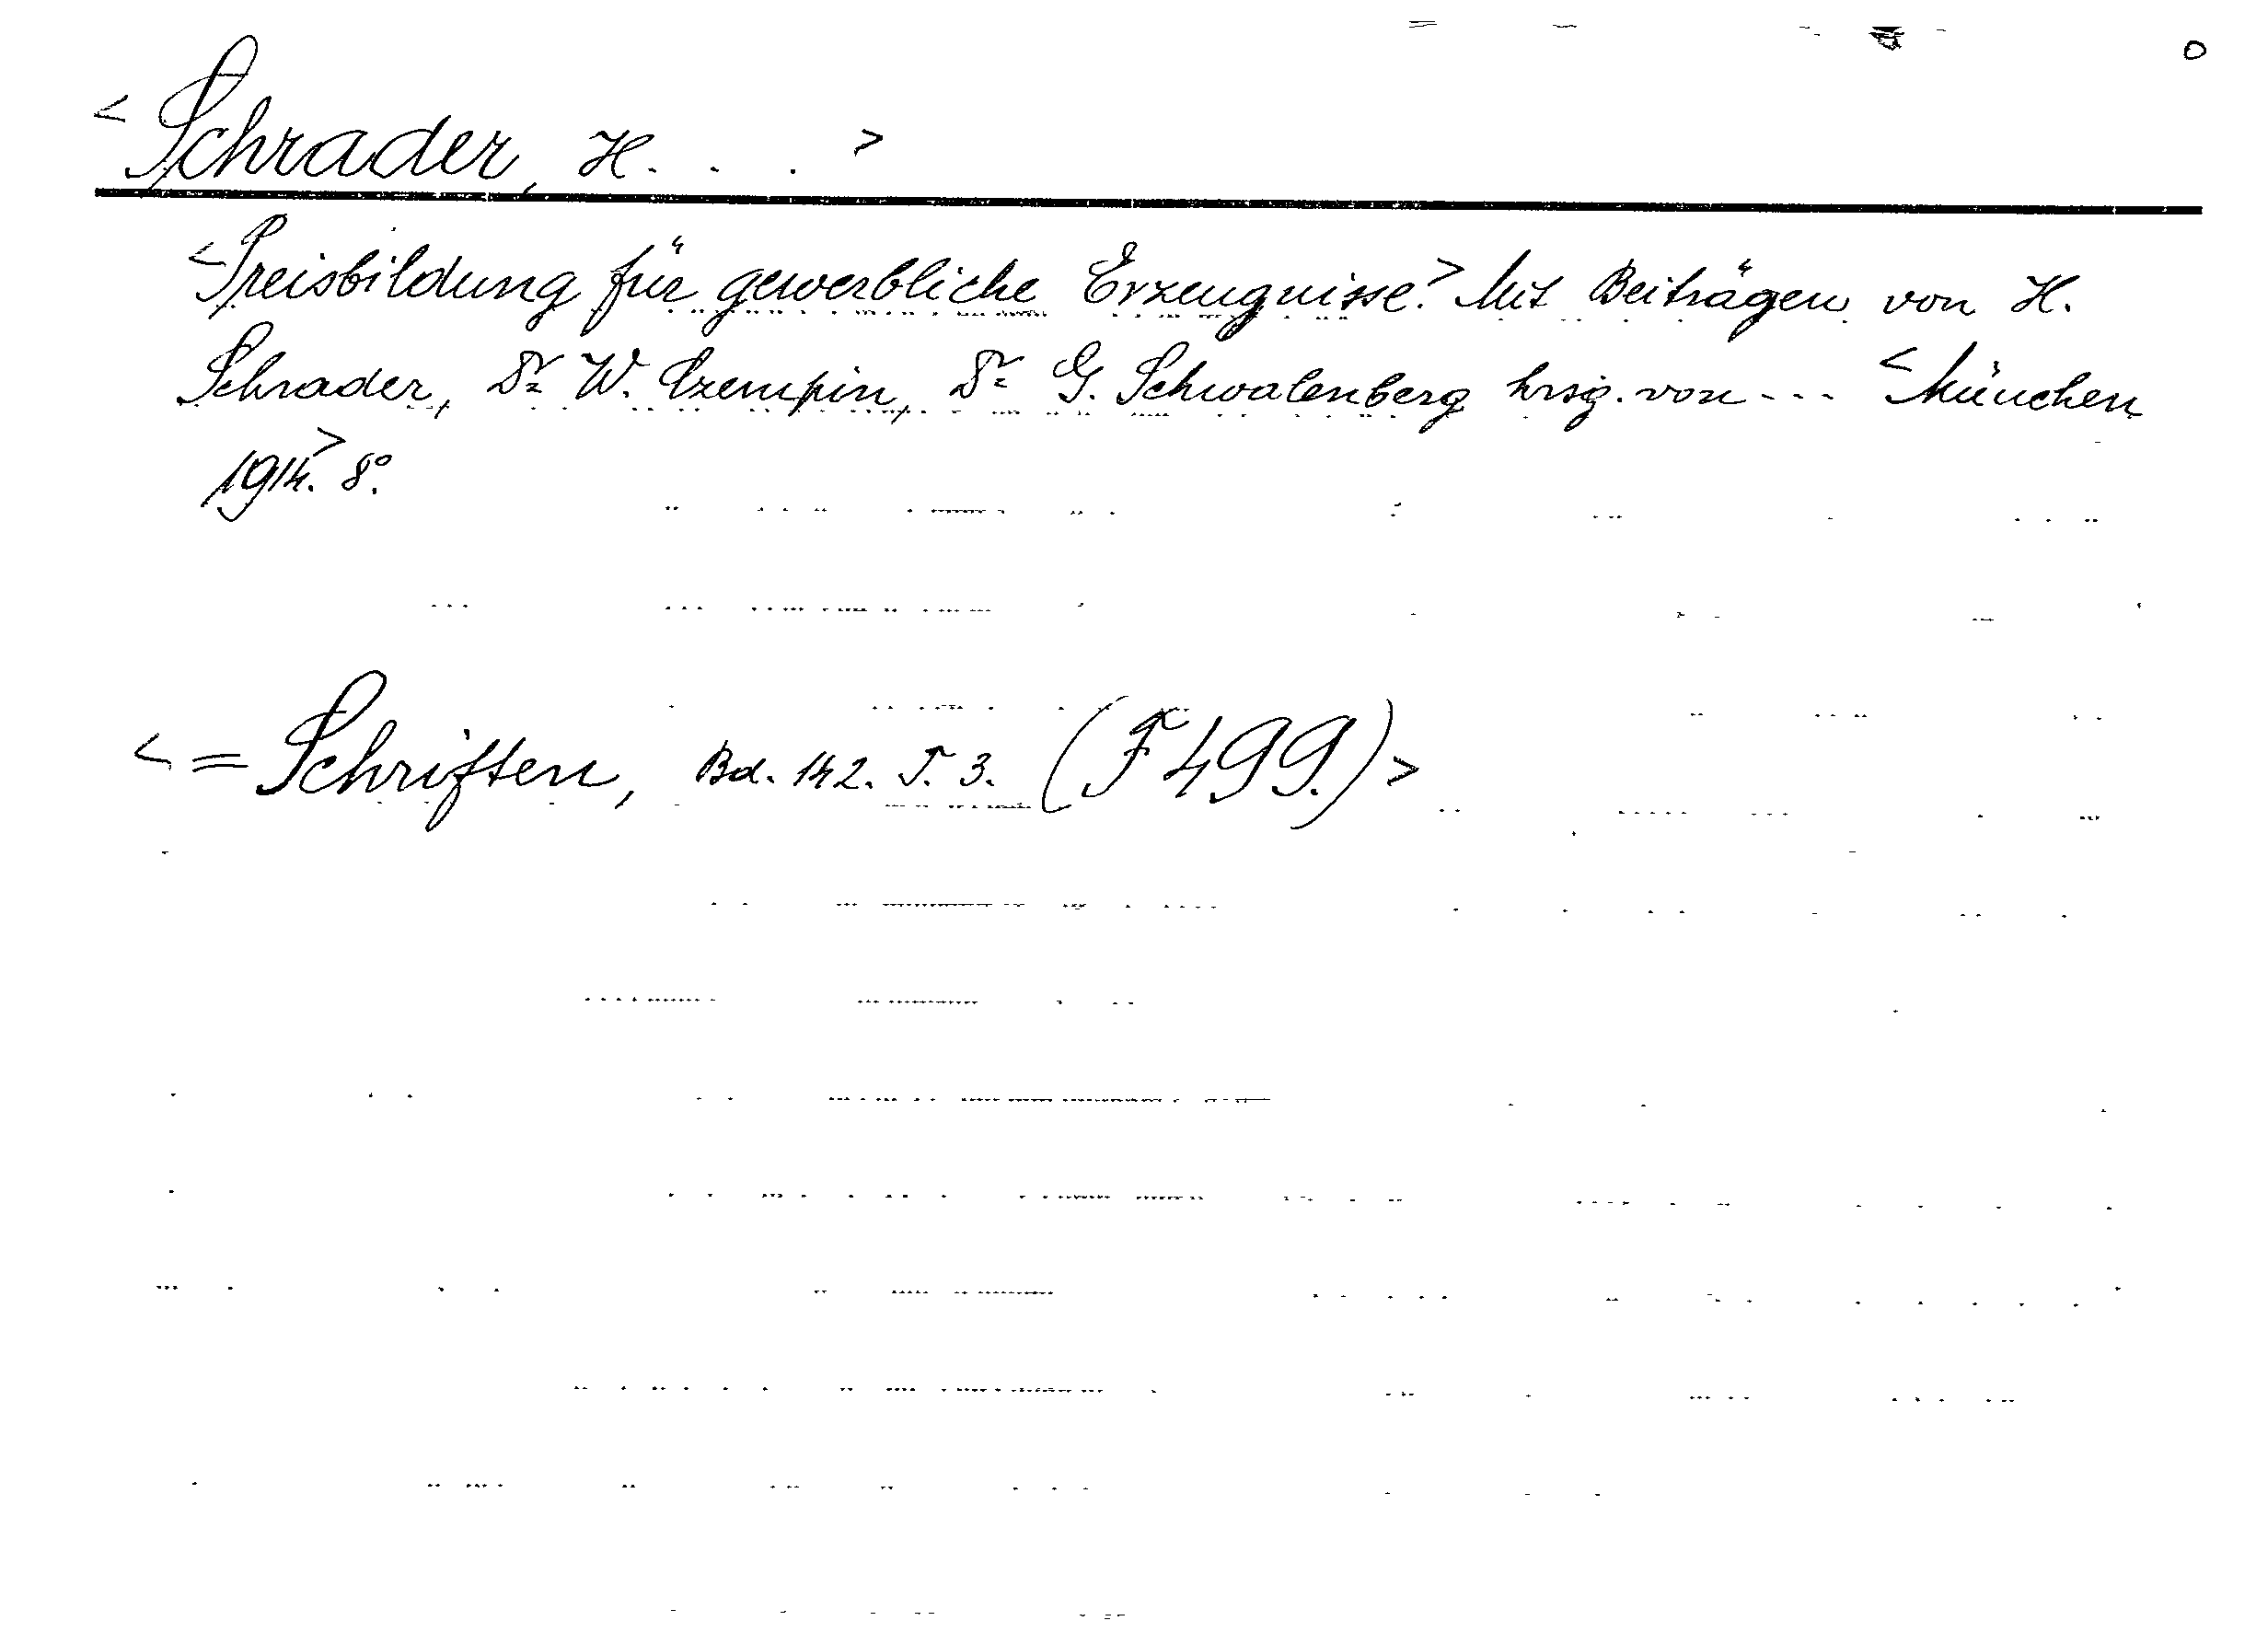 <Schrader, H. . . >
<Preisbildung für gewerbliche Erzeugnisse.> Mit Beiträgen von H.
Schrader, Dr W. Czempin, Dr G. Schwalenberg hrsg. von... <München
1914.> 8°.
<=Schriften, Bd. 142. T. 3. (F 499.)>